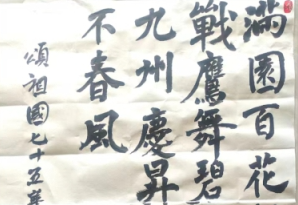 滿園百花
戰鷹舞碧
九州慶昇
不春風
頌祖國七十五華